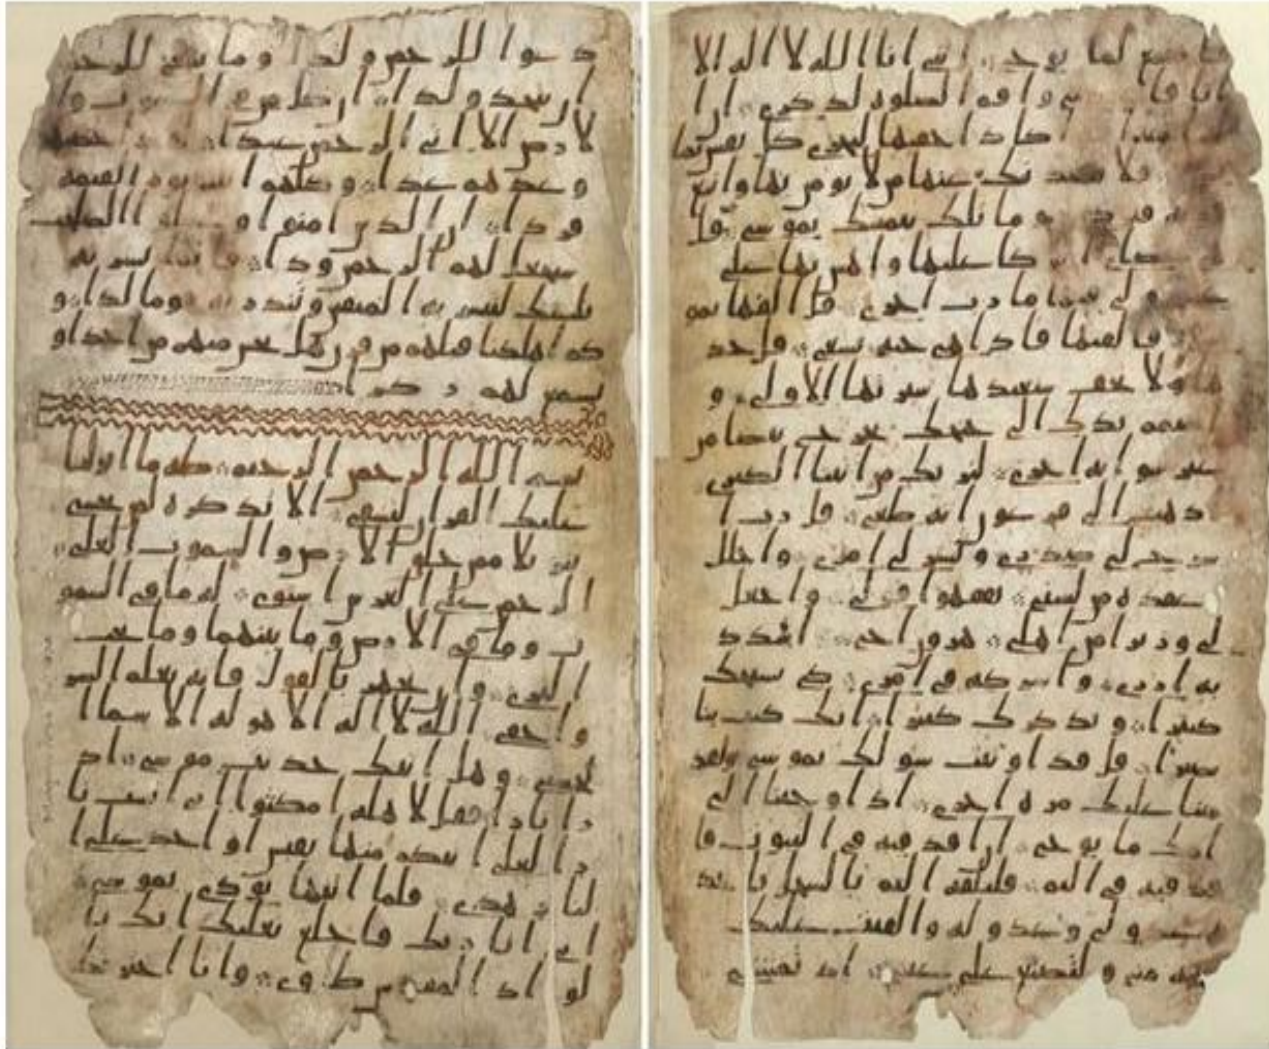 دعوا للرحمن ولدا وما ينبغي للرحمن
ان يتخذ ولدا ان كل من في السموت وا
لارض الا اتي الرحمن عبدا لقد احصهم
وعدهم عدا وكلهم اتيه يوم القيمه
فردا ان الذين امنوا وعملوا الصلحت
سيجعل لهم الرحمن ودا فانما يسرنه
بلسنك لتبشر به المتقين وتنذر به قوما لدا و
كم اهلكنا قبلهم من قرن هل تحس منهم من احد او
تسمع لهم ركزا
بسم الله الرحمن الرحيم طه ما انزلنا
عليك القران لتشقي الا تذكره لمن يخشي
تنزيلا ممن خلق الارض والسموت العلي
الرحمن علي العرش استوي له ما في السمو
ت وما في الارض وما بينهما وما تحت
الثري وان تجهر بالقول فانه يعلم السر
واخفي الله لا اله الا هو له الاسما ا
لحسني وهل اتيك حديث موسي اذ
را نارا فقل لاهله امكثوا اني انست نا
را لعلي اتيكم منها بقبس او اجد علي ا
لنار هدي فلما اتيها نودي يموسي
اني انا ربك فاخلع نعليك انك با
لواد المقدس طوي وانا اخترتك
فاستمع لما يوحي انني انا الله لا اله الا
انا فاعبدني واقم الصلوه لذكري ان ا
اكاد اخفيها لتجزي كل نفس بما
فلا يصدنك عنها من لا يومن بها واتبع
وما تلك بيمينك يموسي قل
هي عصاي اتوكا عليها واهش بها علي
غنمي ولي فيها مارب اخري قل القها يمو
سي فالقيها فاذا هي حيه تسعي قل خذ
ها ولا تخف سنعيدها سيرتها الاولي و
اضمم يدك الي جنحك تخرج بيضا من
غير سوا ايه اخري لنريك من ايتنا الكبري
اذهب الي فرعون انه طغي قل رب ا
شرح لي صدري ويسر لي امري واحلل
عقده من لسني يفقهوا قولي واجعل
لي وزيرا من اهلي هرون اخي اشدد
به ازري واشركه في امري كي نسبحك
كثيرا ونذكرك كثيرا انك كنت بنا
بصيرا قل قد اوتيت سولك يموسي ولقد
مننا عليك مره اخري اذ اوحينا الي
امك ما يوحي ان اقذفيه في التبوت فا
قذفيه في اليم فليلقه اليم بالسحل ياخذ
ه عدو لي وعدو له والقيت عليك
محبه مني ولتصنع علي عيني اذ تمشي